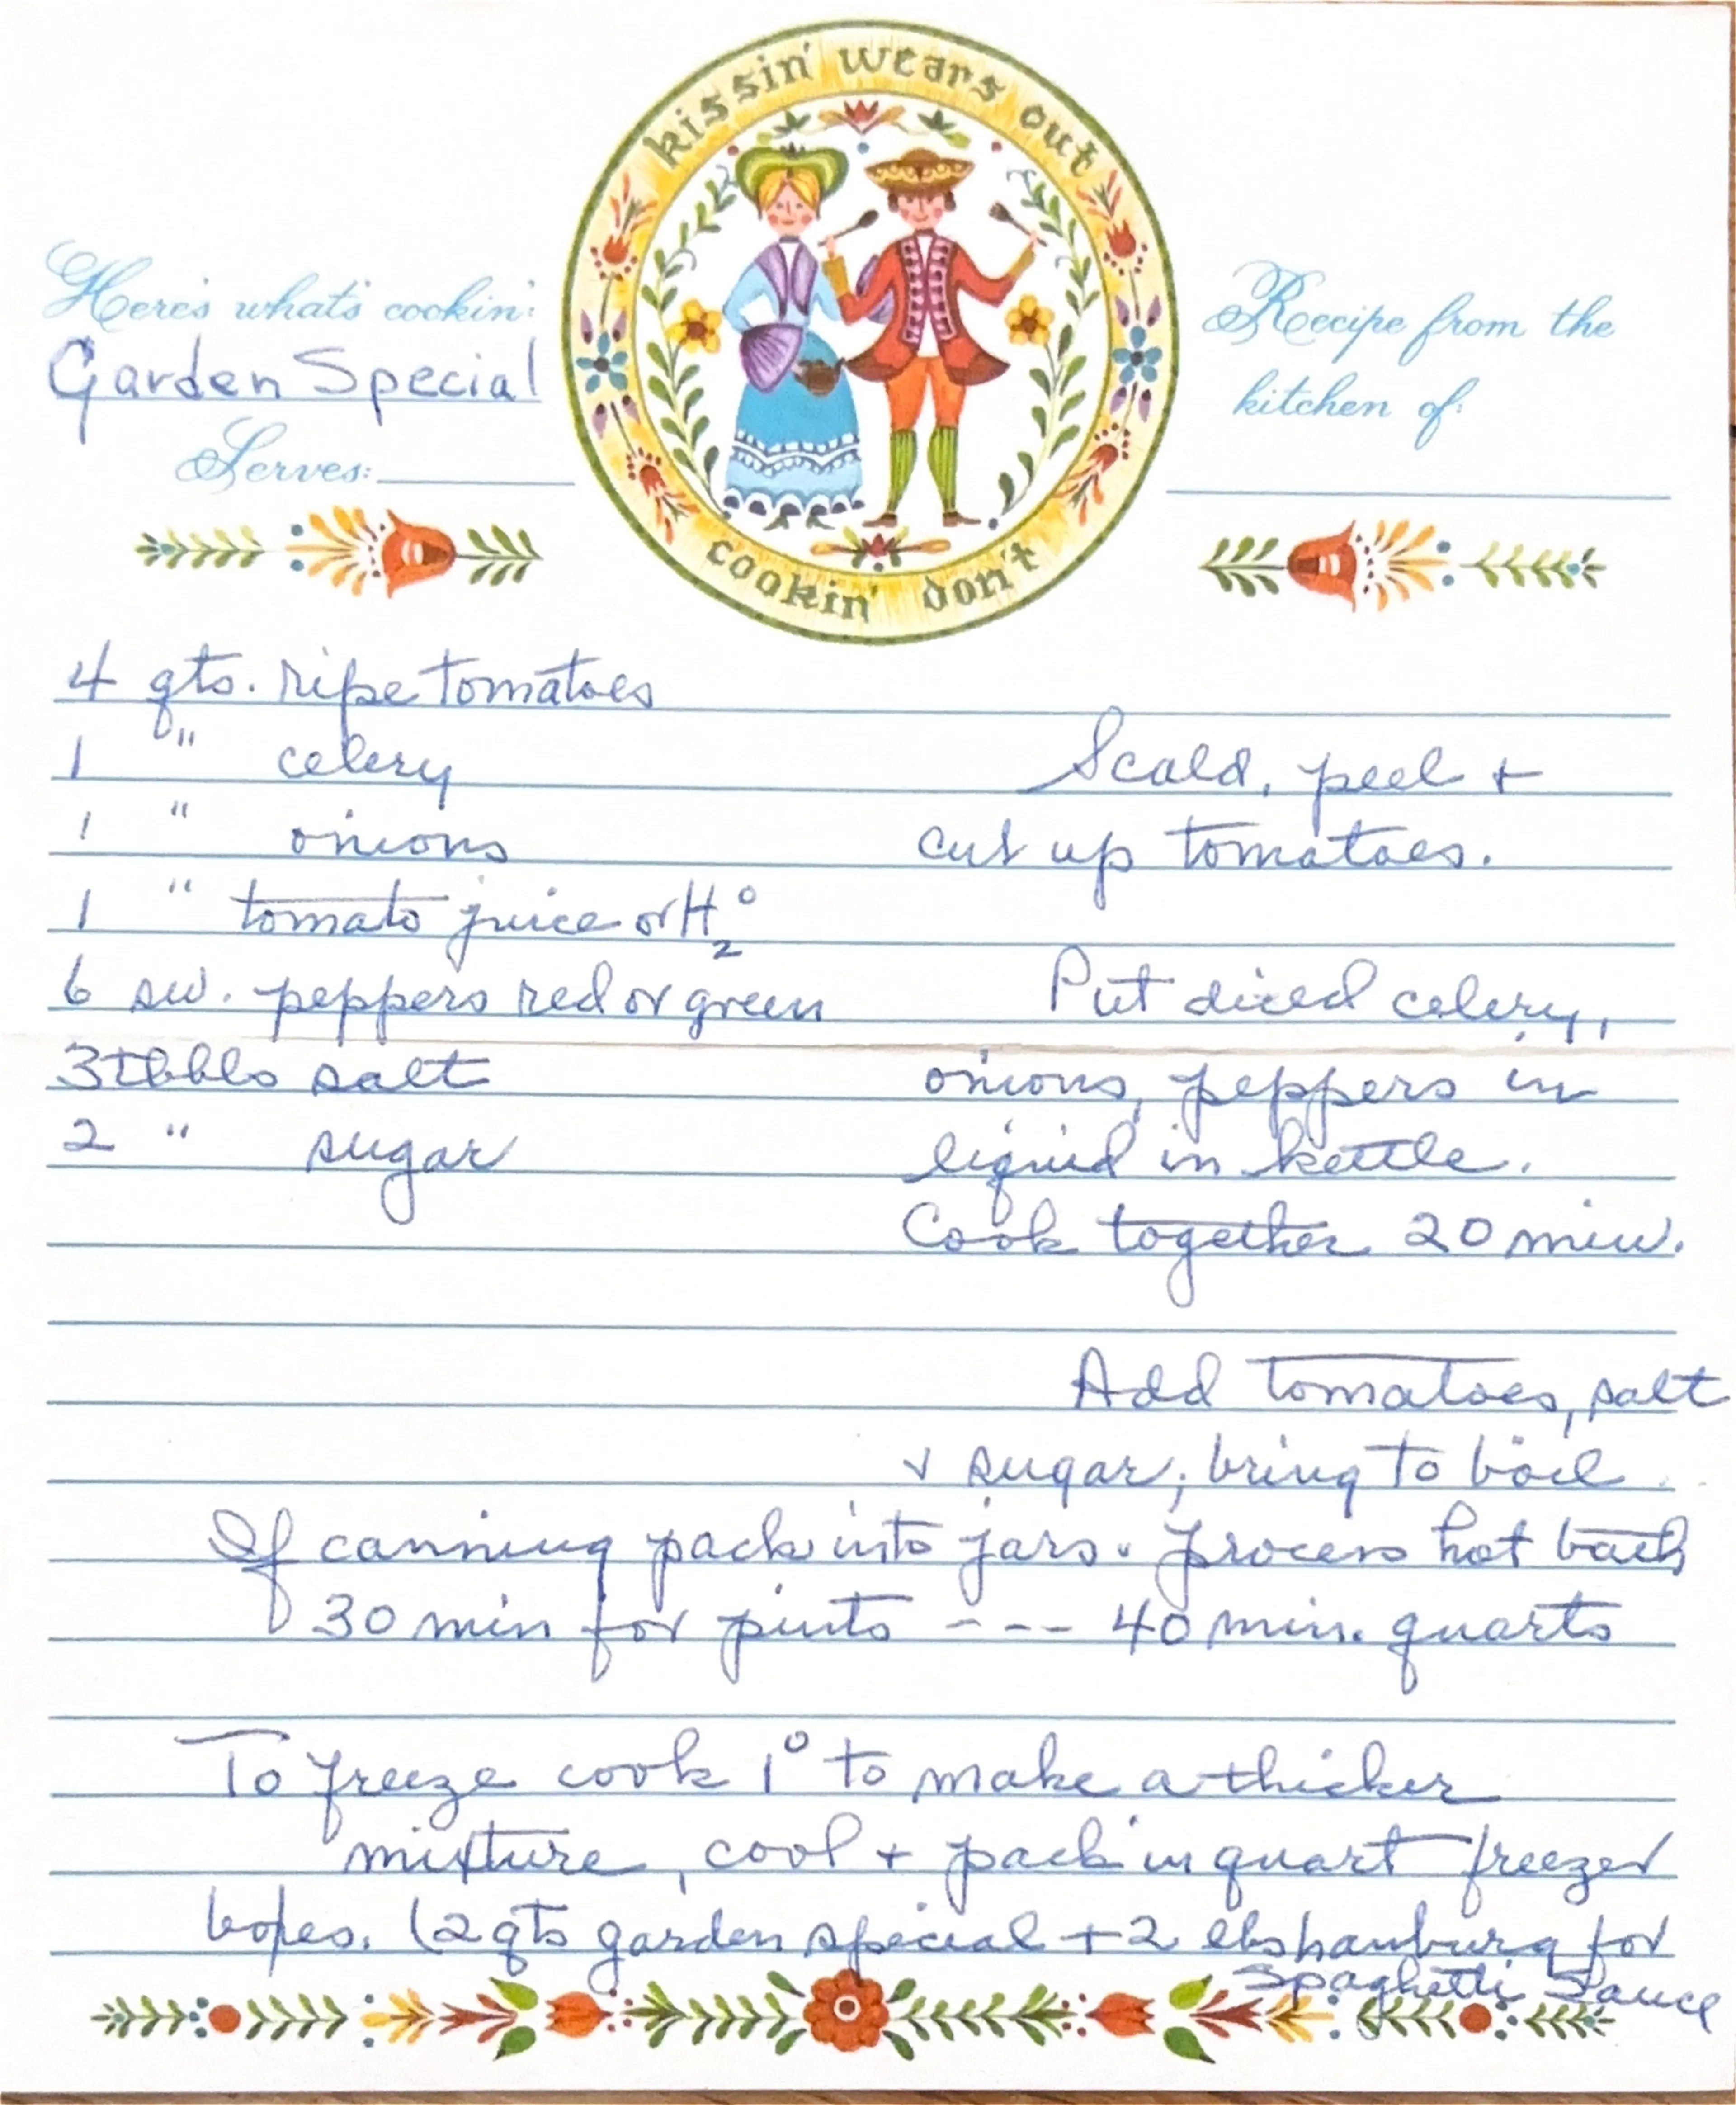 kissin' wears out
cookin' don't
Here's what's cookin':
Garden Special
Serves:
Recipe from the
kitchen of:
4 qts. ripe tomatoes
1 " celery
1 " onions
1 " tomato juice or H2O
6 sw. peppers red or green
3 tbbls salt
2 " sugar
Scald, peel +
cut up tomatoes.
Put diced celery,
onions, peppers in
liquid in kettle.
Cook together 20 min.
Add tomatoes, salt
+ sugar; bring to boil
If canning pack into jars. process hot bath
30 min for pints --- 40 min. quarts
To freeze cook 1° to make a thicker
mixture, cool + pack in quart freezer
boxes. (2 qts garden special + 2 lbs hamburg for
Spaghetti Sauce